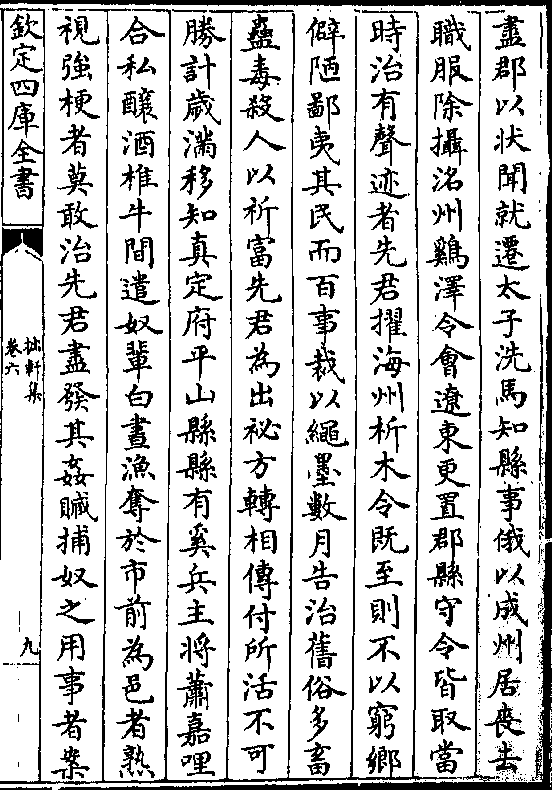 盡郡以狀聞就遷太子洗馬知縣事俄以成州居喪去
職服除攝洺州鷄澤令會遼東更置郡縣守令皆取當
時治有聲迹者先君擢海州析木令既至則不以窮鄉
僻陋鄙夷其民而百事裁以繩墨數月告治舊俗多畜
蠱毒殺人以祈富先君為出祕方轉相傳付所活不可
勝計歲滿移知真定府平山縣縣有奚兵主將蕭嘉哩
合私釀酒椎牛間遣奴輩白晝漁奪於市前為邑者熟
視強梗者莫敢治先君盡發其姦贓捕奴之用事者案
欽定四庫全書
拙軒集
卷六
九